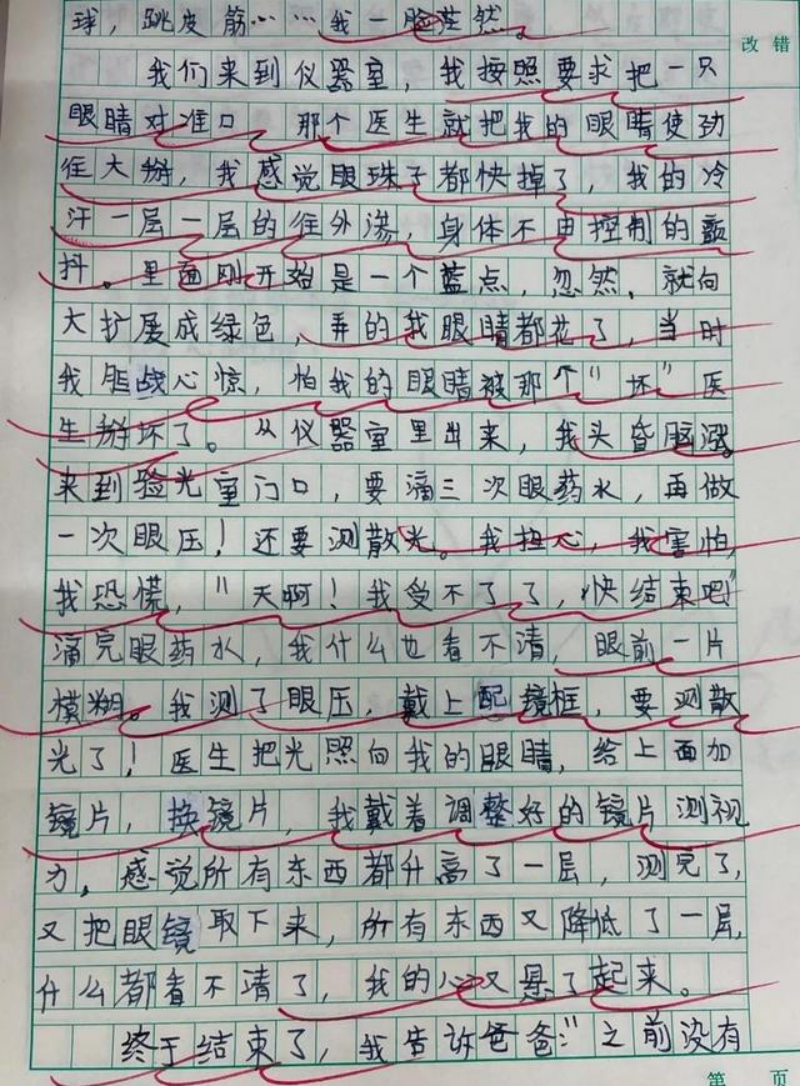 球，跳皮筋……我一脸茫然。
改错
我们来到仪器室，我按照要求把一只
眼睛对准口　那个医生就把我的眼睛使劲
往大掰，我感觉眼珠子都快掉了，我的冷
汗一层一层的往外渗，身体不由控制的颤
抖。里面刚开始是一个蓝点，忽然，就向
大扩展成绿色，弄的我眼睛都花了，当时
我胆战心惊，怕我的眼睛被那个“坏”医
生掰坏了。从仪器室里出来，我头昏脑涨。
来到验光室门口，要滴三次眼药水，再做
一次眼压！还要测散光。我担心，我害怕，
我恐慌，“天啊！我受不了了，快结束吧”
滴完眼药水，我什么也看不清，眼前一片
模糊。我测了眼压，戴上配镜框，要测散
光了！医生把光照向我的眼睛，给上面加
镜片，换镜片，我戴着调整好的镜片测视
力，感觉所有东西都升高了一层，测完了，
又把眼镜取下来，所有东西又降低了一层，
什么都看不清了，我的心又悬了起来。
终于结束了，我告诉爸爸：“之前没有
第　页